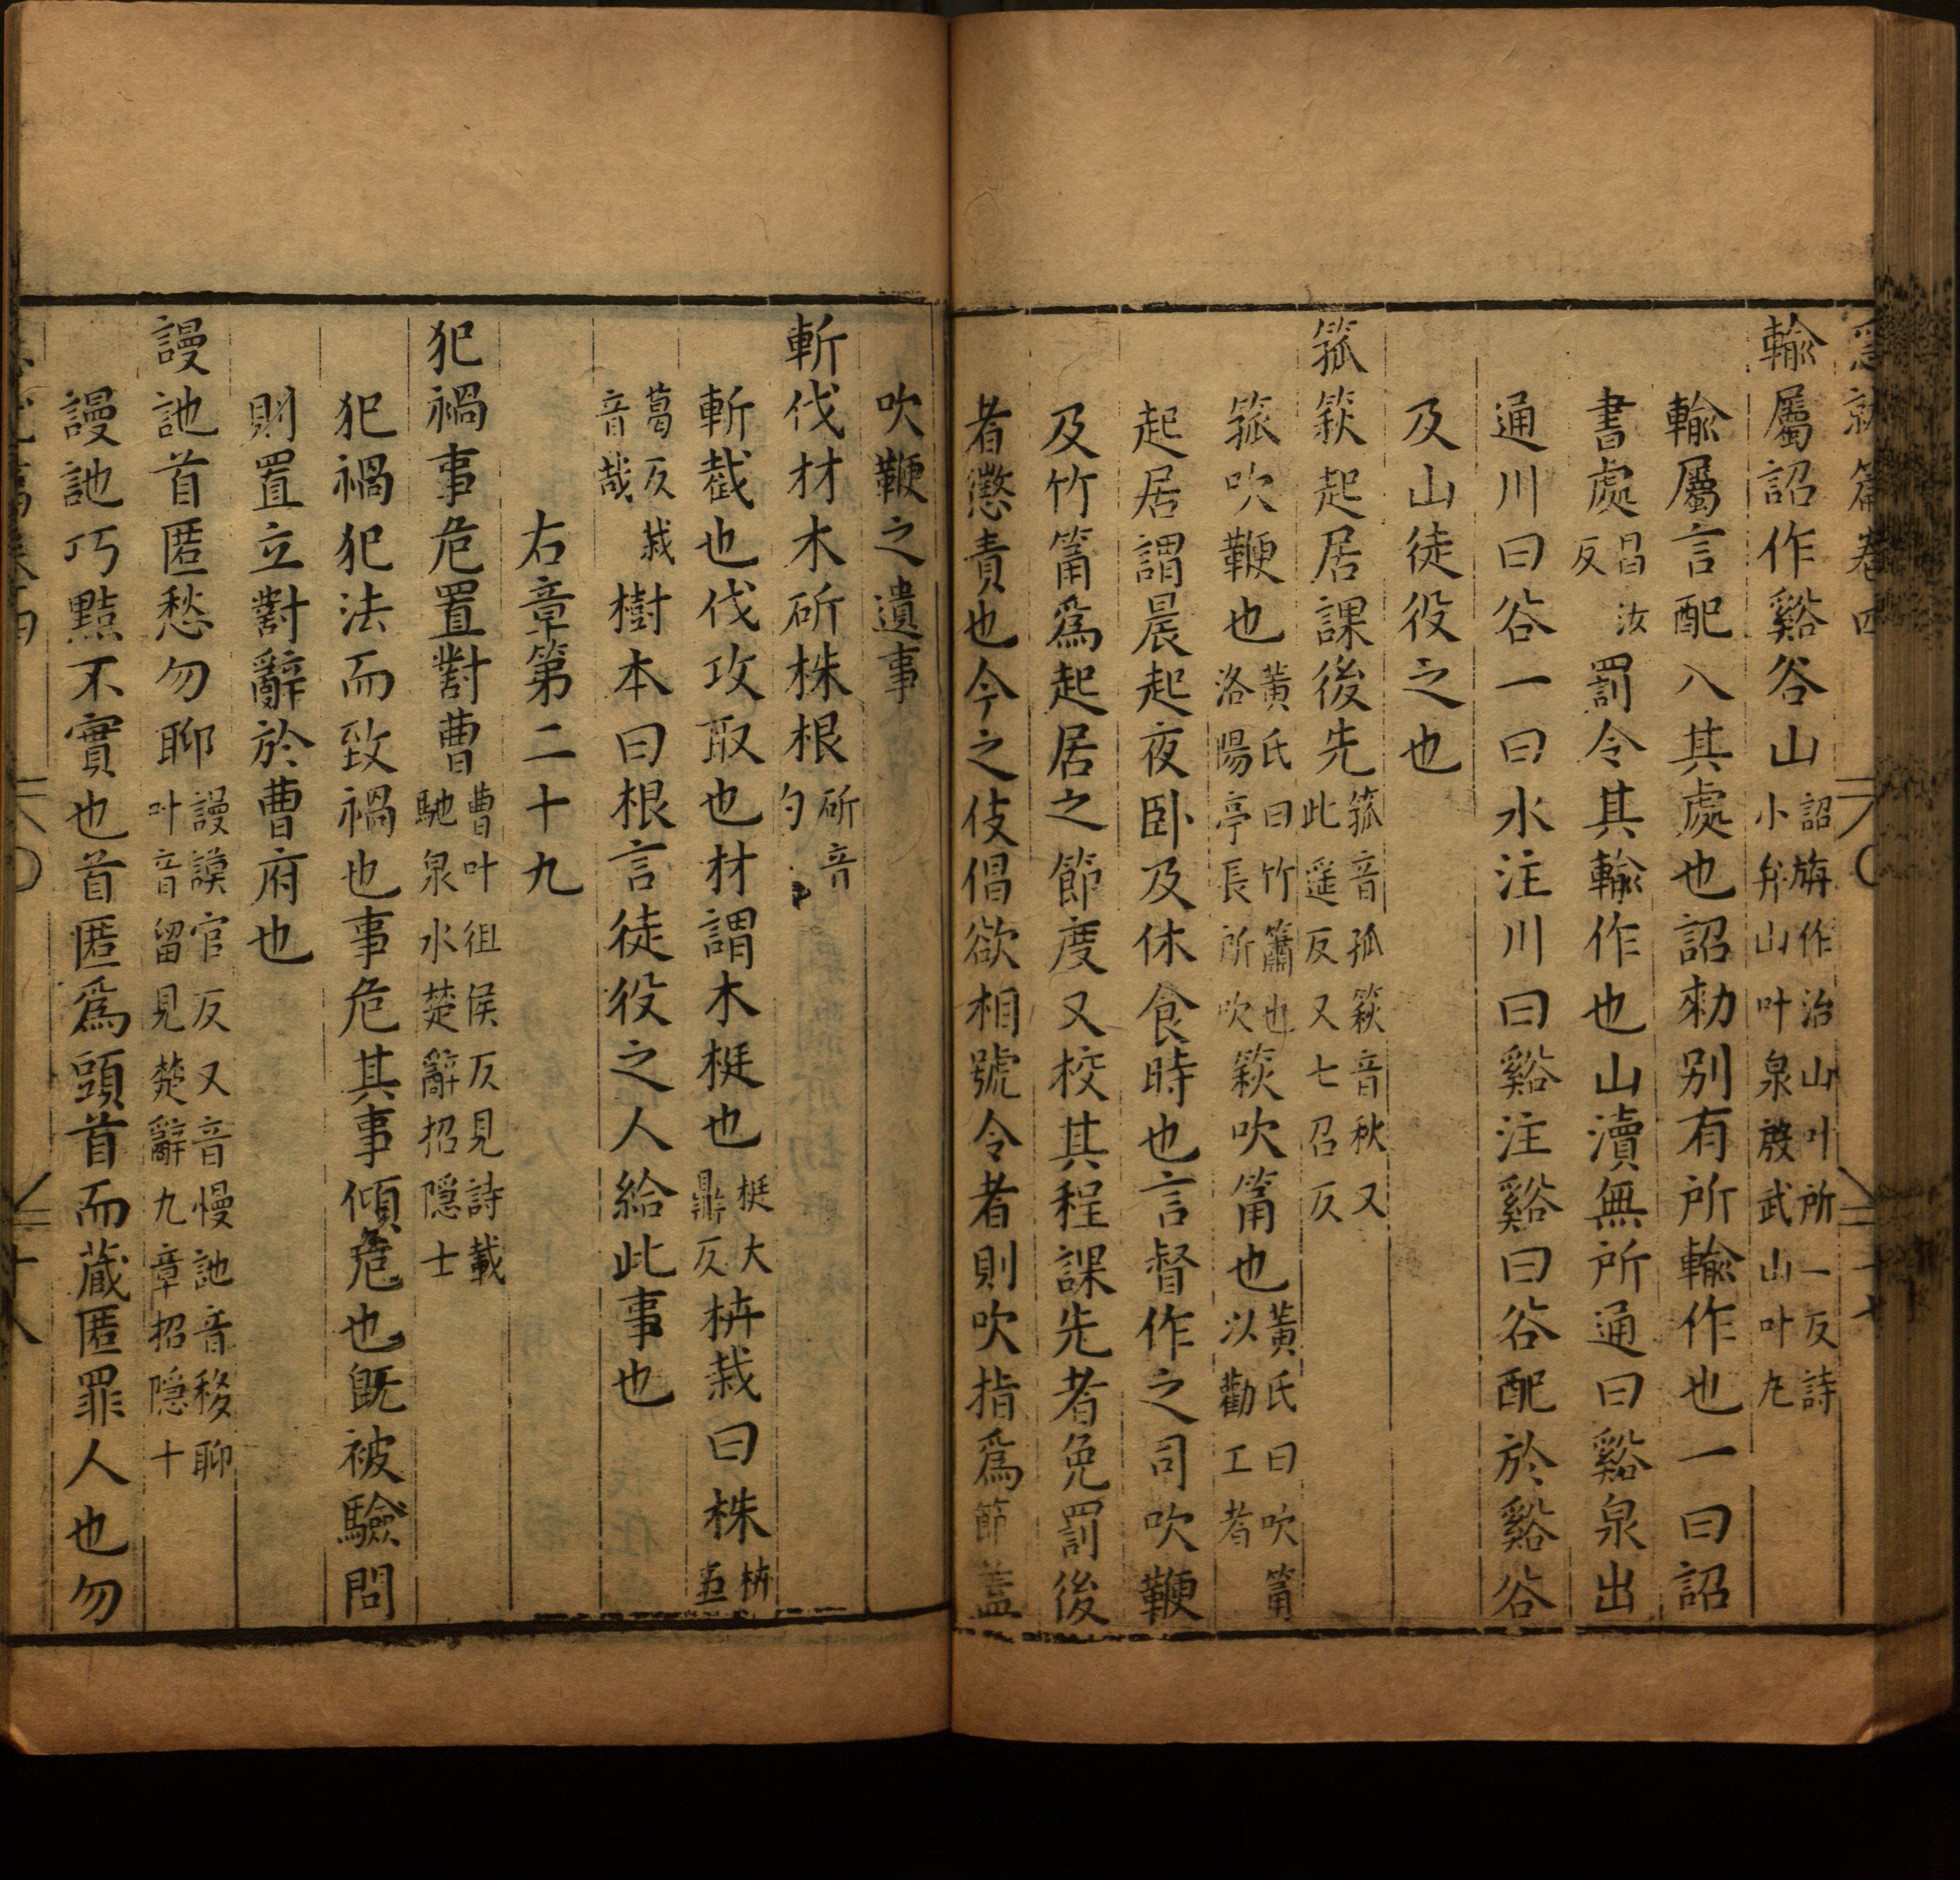 急就篇卷四
輸屬詔作谿谷山詔旃作治山叶所一反詩小弁山叶泉殷武山叶丸
輸屬言配入其處也詔勑别有所輸作也一曰詔
書處昌汝反罰令其輸作也山瀆無所通曰谿泉出
通川曰谷一曰水注川曰谿注谿曰谷配於谿谷
及山徒役之也
箛篍起居課後先箛音孤篍音秋又此遥反又七召反
箛吹鞭也黄氏曰竹簫也洛陽亭長所吹篍吹筩也黄氏曰吹筩以勸工者
起居謂晨起夜卧及休食時也言督作之司吹鞭
及竹筩爲起居之節度又校其程課先者免罰後
者懲責也今之伎倡欲相號令者則吹指爲節蓋
吹鞭之遺事
斬伐材木斫株根斫音勺
斬截也伐攻取也材謂木梃也梃大鼎反枿栽曰株枿五
葛反栽音哉樹本曰根言徒役之人給此事也
右章第二十九
犯禍事危置對曹曹叶徂侯反見詩載馳泉水楚辭招隱士
犯禍犯法而致禍也事危其事傾危也既被驗問
則置立對辭於曹府也
謾訑首匿愁勿聊謾謨官反又音慢訑音移聊叶音留見楚辭九章招隱士
謾訑巧黠不實也首匿爲頭首而蔵匿罪人也勿